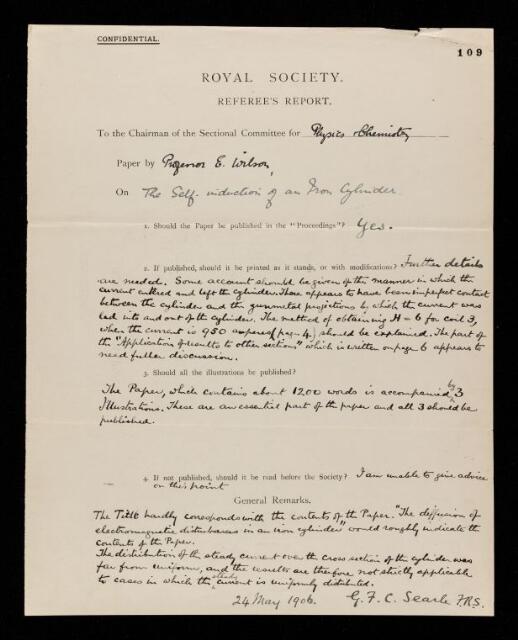 CONFIDENTIAL.
109
ROYAL SOCIETY.
REFEREE'S REPORT.
To the Chairman of the Sectional Committee for Physics & Chemistry
Paper by Professor E. Wilson,
On The Self-induction of an Iron Cylinder.
1. Should the Paper be published in the "Proceedings"? Yes.
2. If published, should it be printed as it stands, or with modifications? Further details
are needed. Some account should be given of the manner in which the
current entered and left the cylinder. There appears to have been imperfect contact
between the cylinder and the gunmetal projections by which the current was
led into and out of the cylinder. The method of obtaining H = 6 for coil 3,
when the current is 950 amperes (page 4) should be explained. The part of
the "Application of results to other sections" which is written on page 6 appears to
need fuller discussion.
3. Should all the illustrations be published?
The Paper, which contains about 1200 words is accompanied by 3
Illustrations. These are an essential part of the paper and all 3 should be
published.
4. If not published, should it be read before the Society? I am unable to give advice
on this point
General Remarks.
The Title hardly corresponds with the contents of the Paper. "The diffusion of
electromagnetic disturbances in an iron cylinder" would roughly indicate the
contents of the Paper.
The distribution of the steady current over the cross section of the cylinder was
far from uniform, and the results are therefore not strictly applicable
to cases in which the steady current is uniformly distributed.
24 May 1906. G. F. C. Searle F.R.S.